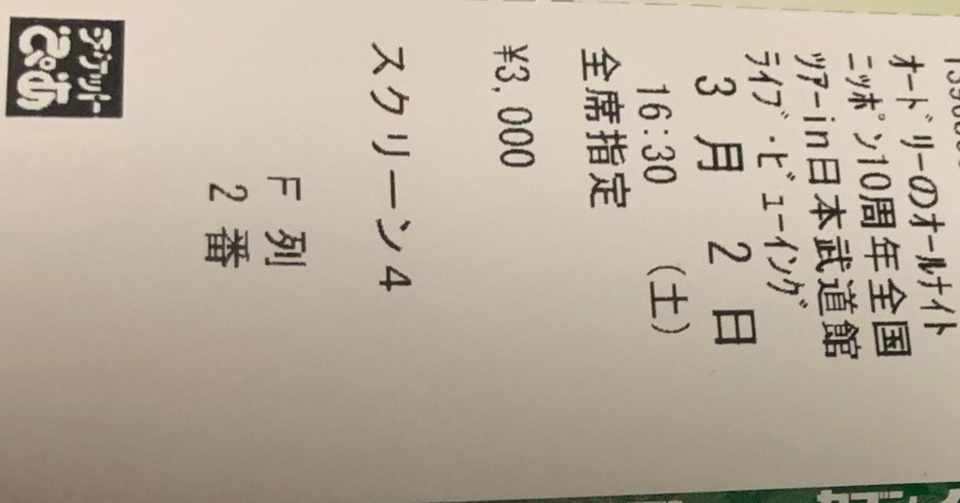 ｵｰﾄﾞﾘｰのｵｰﾙﾅｲﾄ
ﾆｯﾎﾟﾝ10周年全国
ﾂｱｰin日本武道館
ﾗｲﾌﾞ･ﾋﾞｭｰｲﾝｸﾞ
3月 2日
16:30 (土)
全席指定
¥3,000
スクリーン4
F 列
2 番
チケット
ぴあ